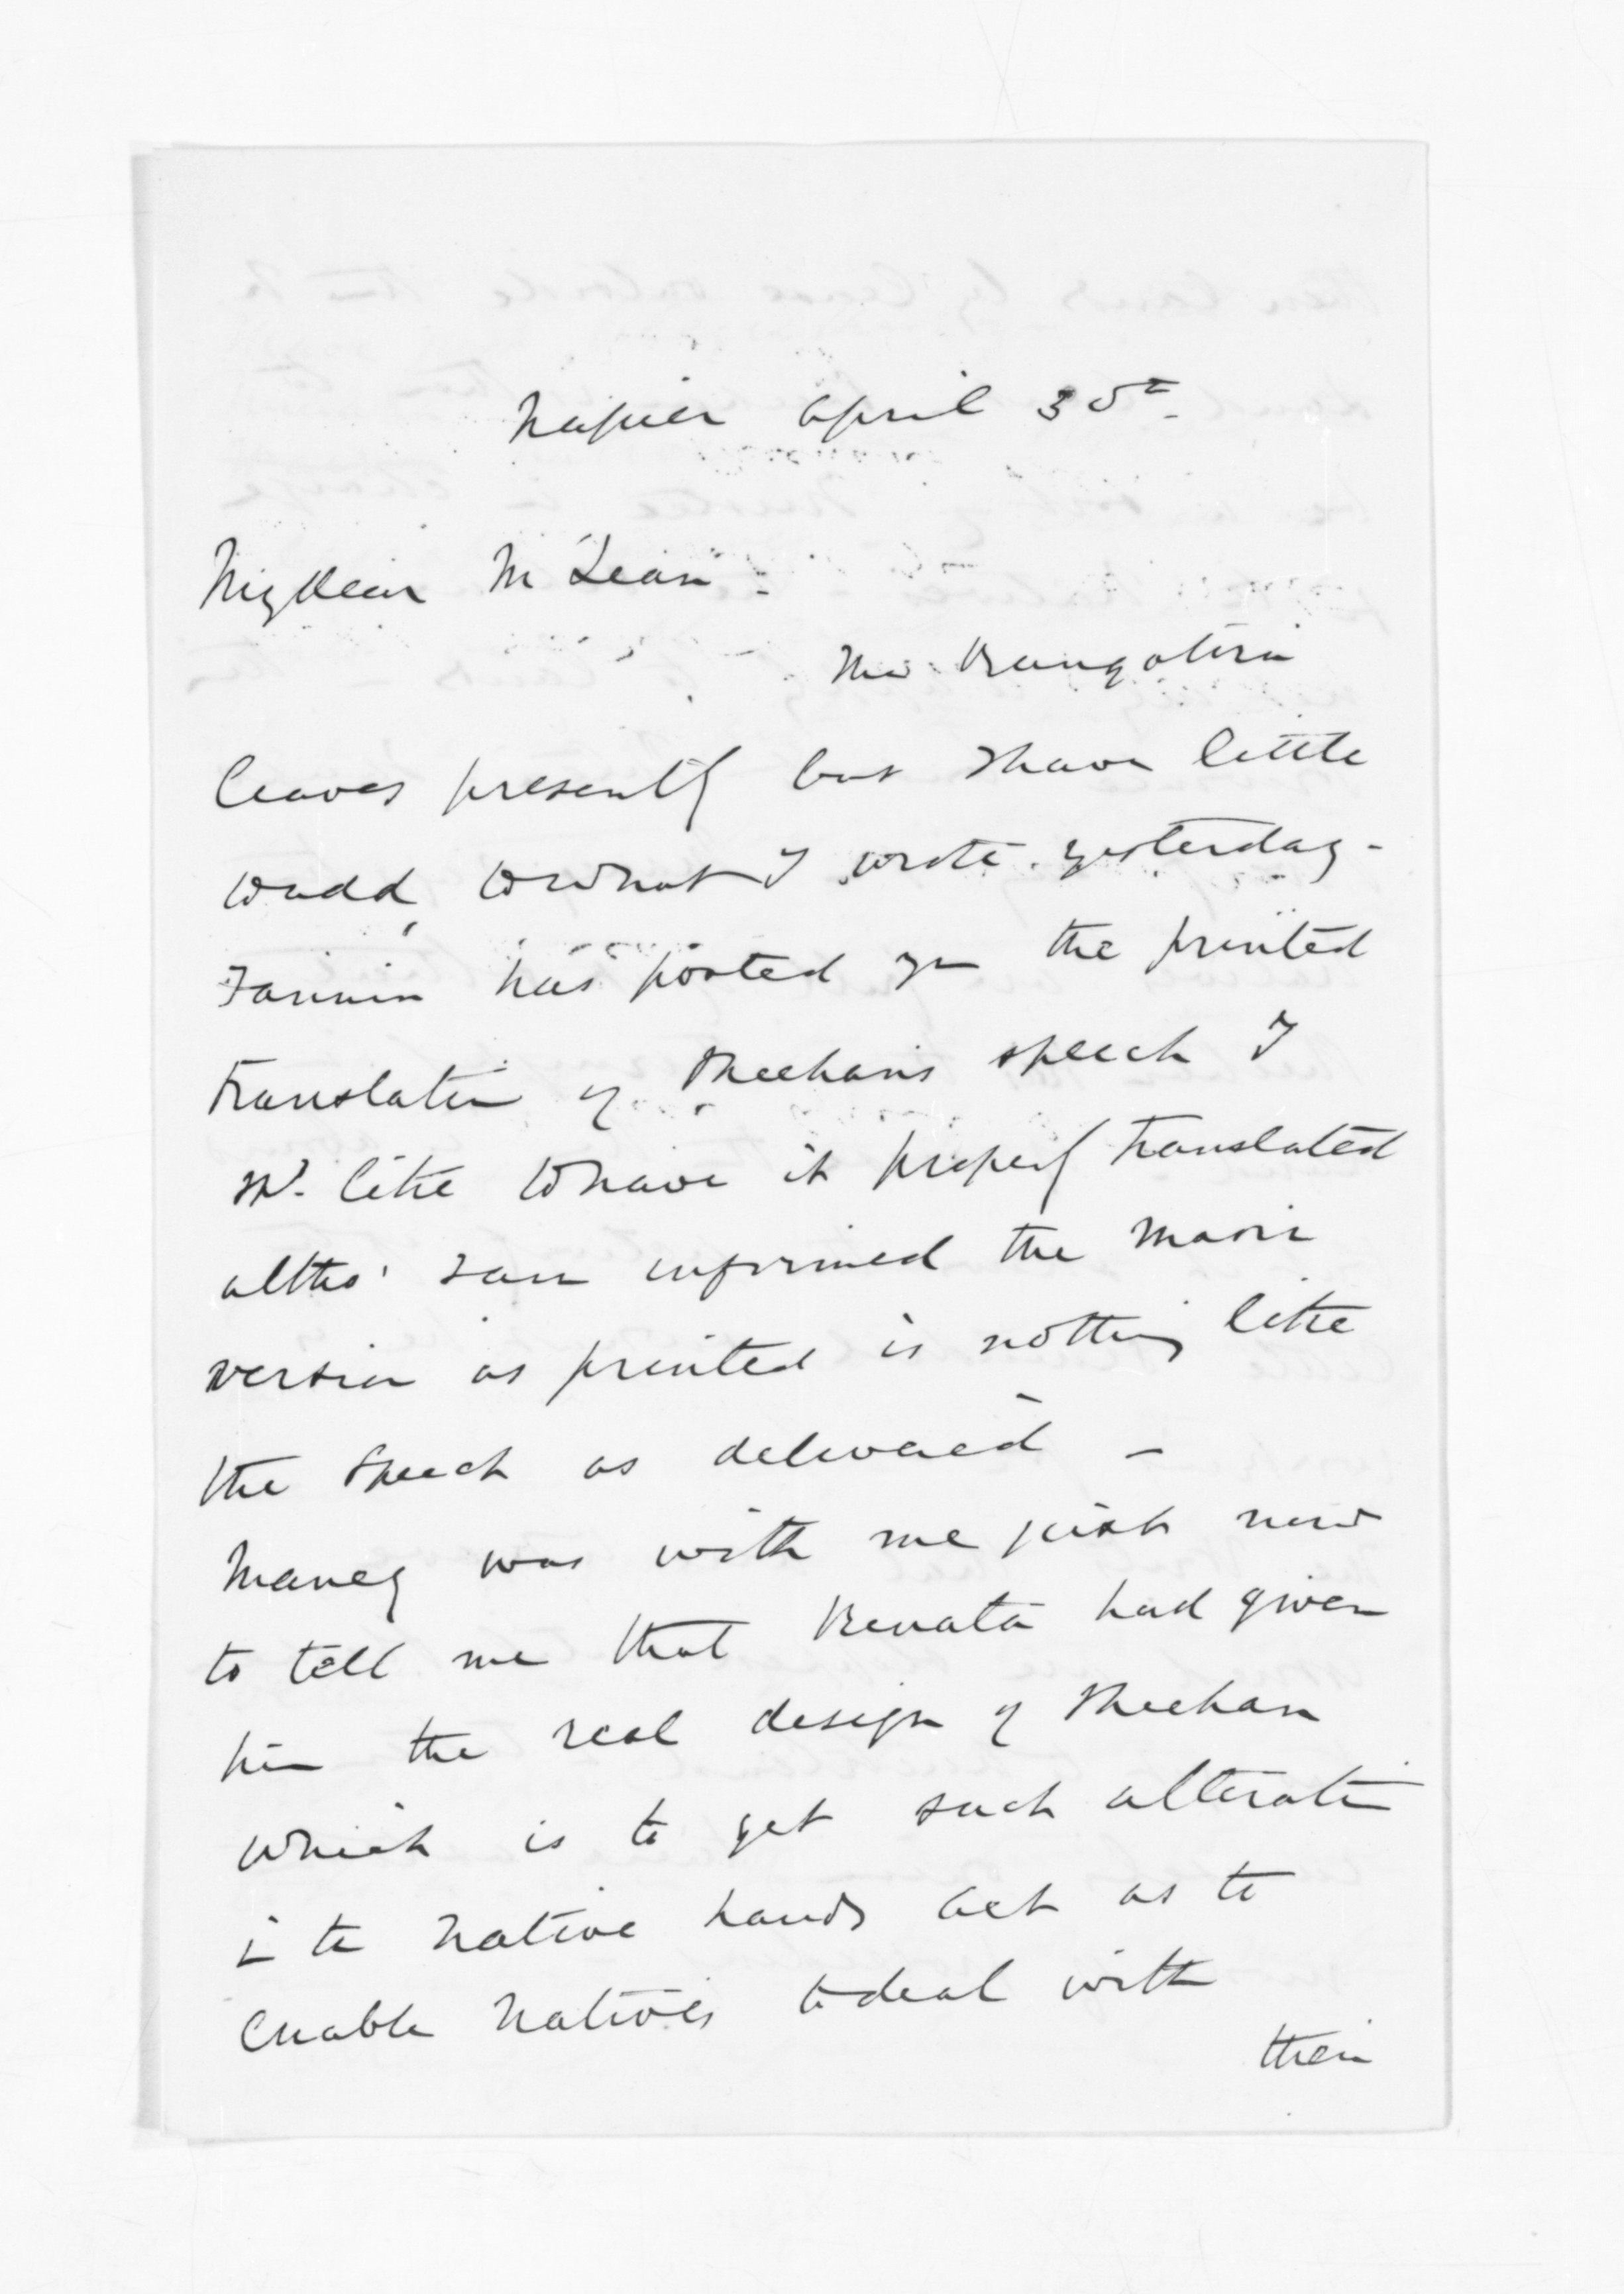 Napier April 30th
My dear McLean:
The Rangatira
leaves presently but I have little
to add to what I wrote yesterday -
Fannin has posted you the printed
translation of Sheehan's speech I
shd. like to have it properly translated
altho' I am informed the Maori
version as printed is nothing like
the Speech as delivered -
Maney was with me just now
to tell me that Renata had given
him the real design of Sheehan
which is to get such alteration
in the Native Lands Act as to
enable Natives to deal with
their